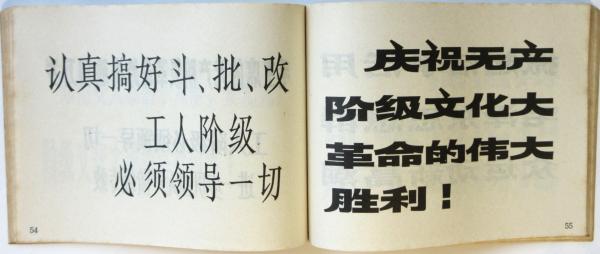 认真搞好斗、批、改
工人阶级
必须领导一切
54
庆祝无产
阶级文化大
革命的伟大
胜利！
55